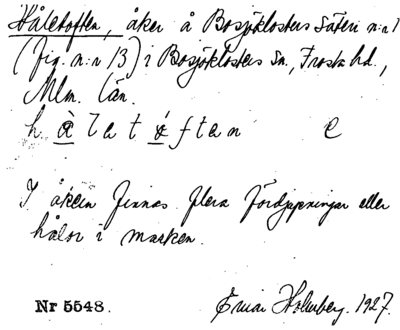 Håletoften, åker å Bosjöklosters Säteri n:r 1
(Fig. n:r 13) i Bosjöklosters Sn., Frosta hd.,
Mlm. län.
h a l a t å f t a n e
I åkern finnas flera fördjupningar eller
hålor i marken.
Nr 5548. Einar Holmberg. 1927.